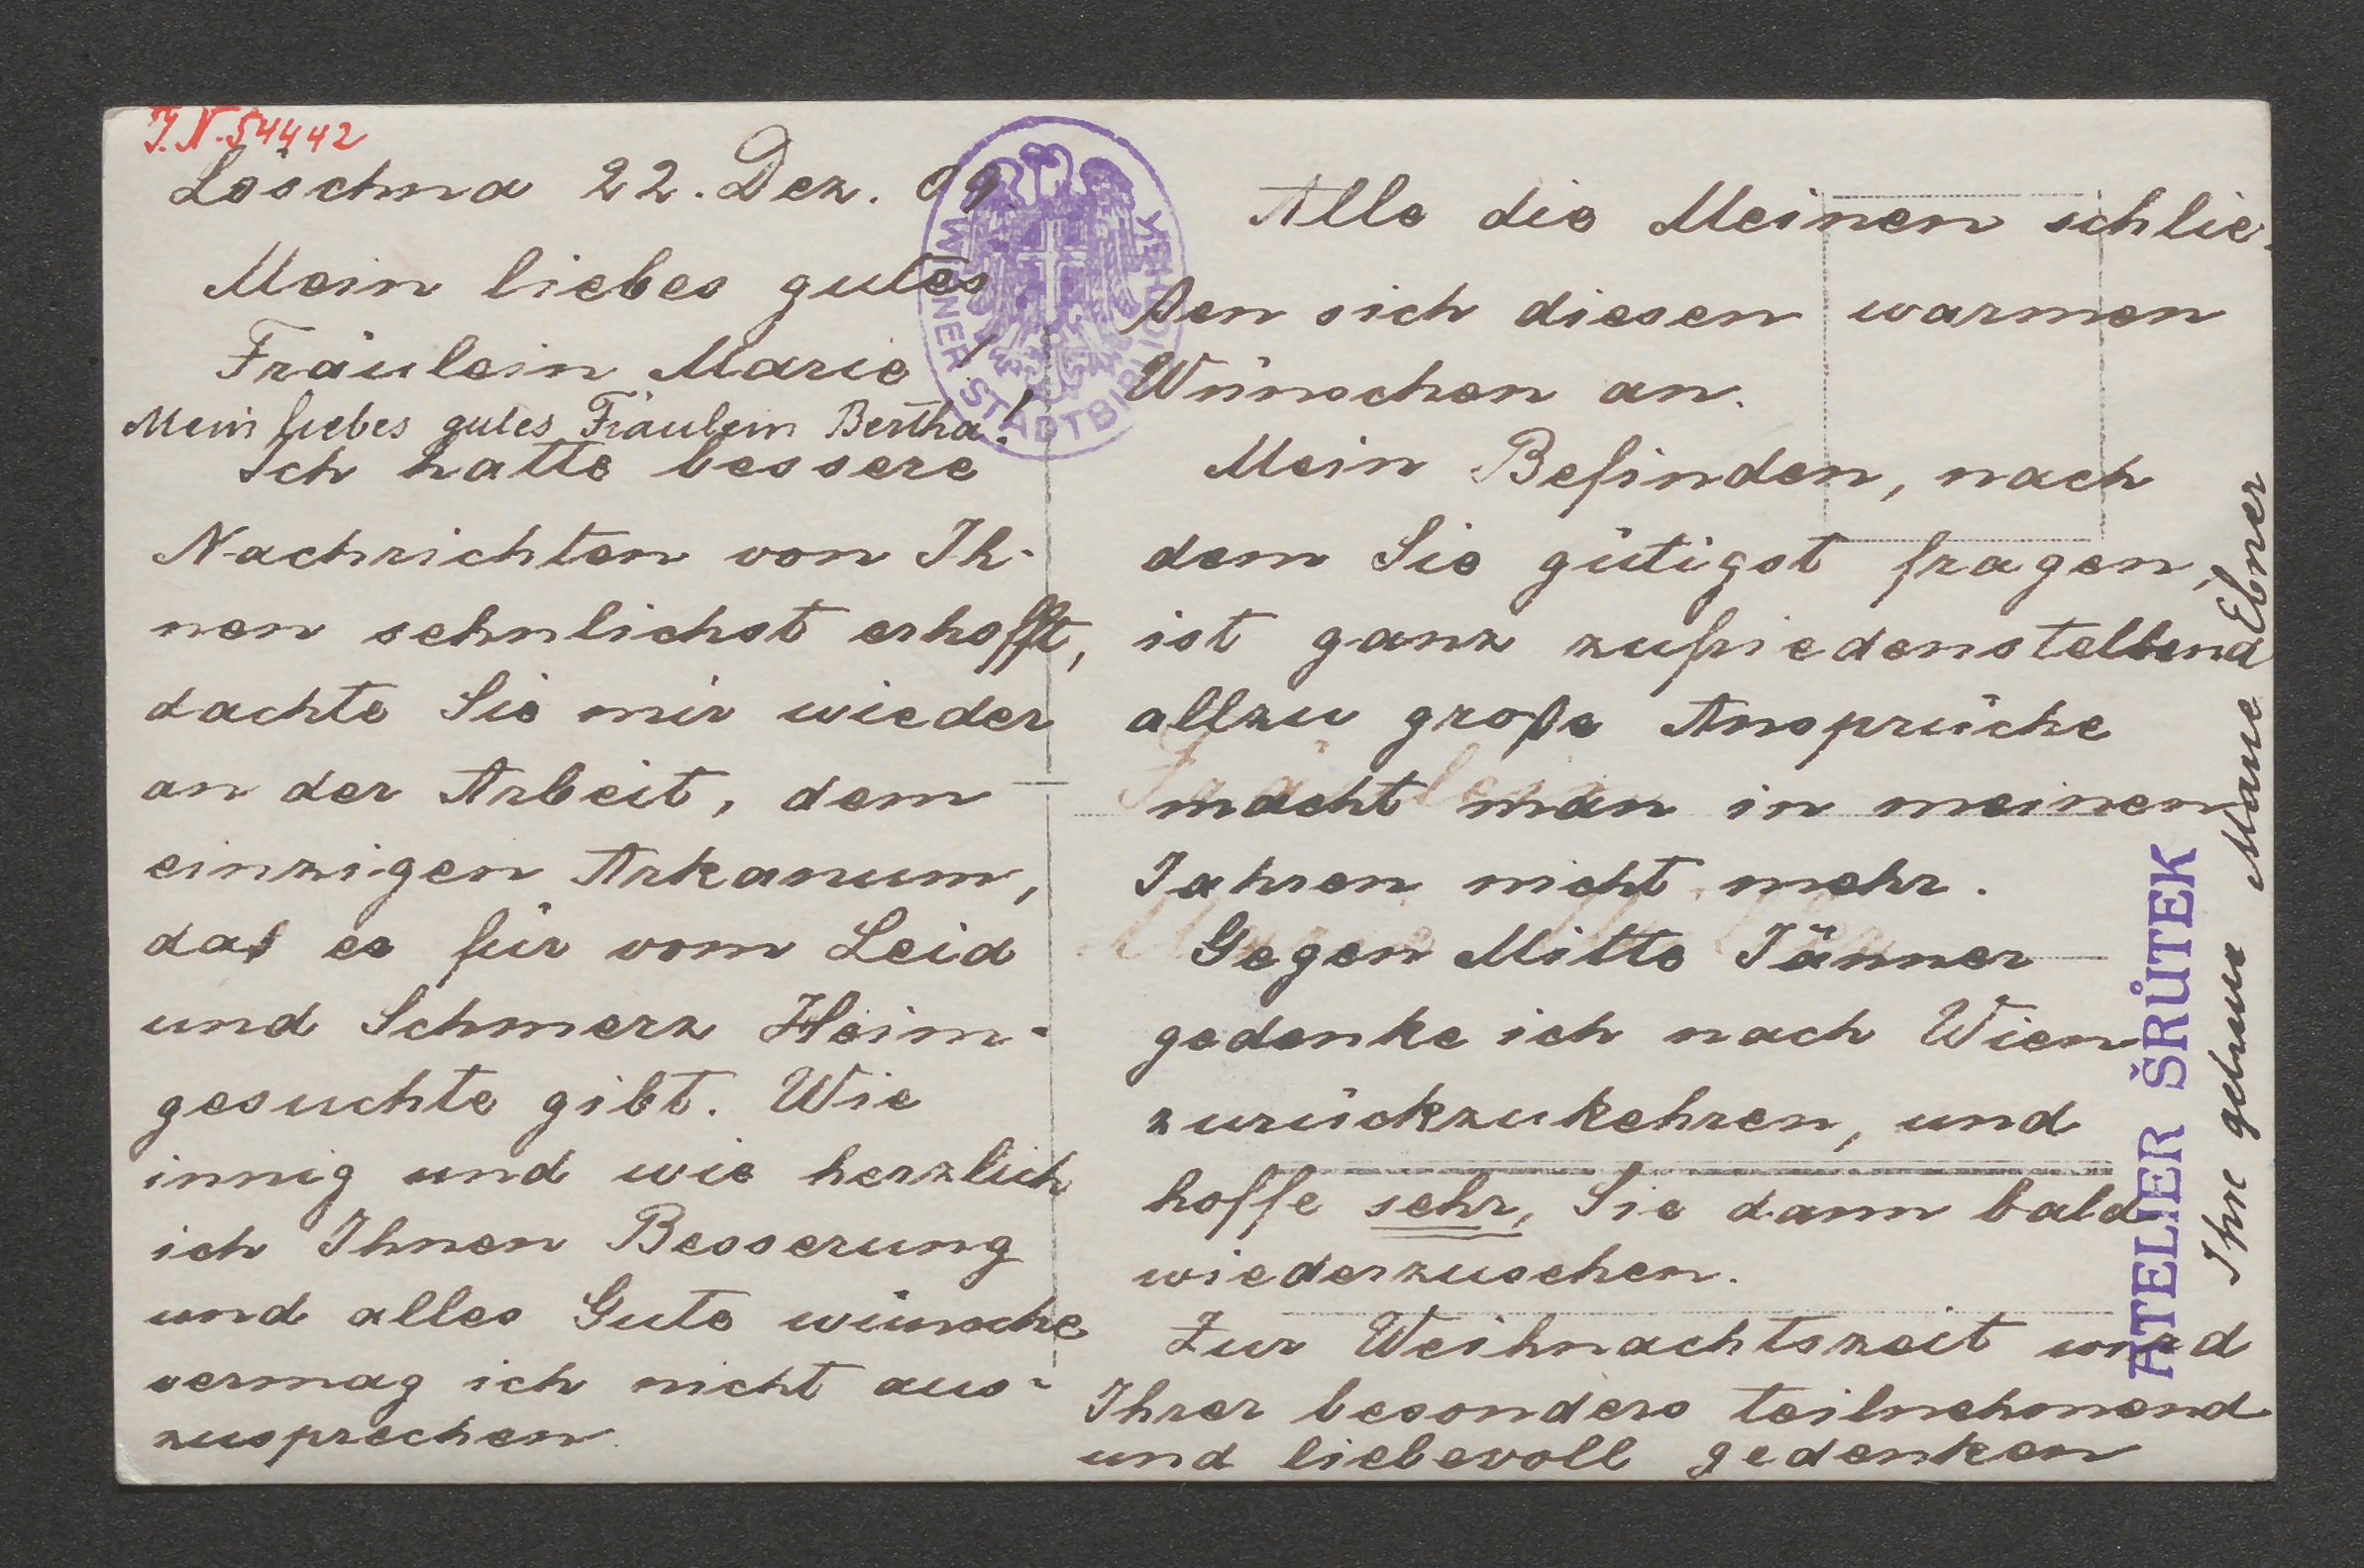 J.N. 54442
Löschna 22. Dez. 09.
Mein liebes gutes
Fräulein Marie!
Mein liebes gutes Fräulein Bertha!
Ich hatte bessere
Nachrichten von Ih-
nen sehnlichst erhofft,
dachte Sie mir wieder
an der Arbeit, dem
einzigen Arkanum,
das es für vom Leid
und Schmerz Heim-
gesuchte gibt. Wie
innig und wie herzlich
ich Ihnen Besserung
und alles Gute wünsche
vermag ich nicht aus-
zusprechen.
Alle die Meinen schlie-
ßen sich diesen warmen
Wünschen an.
Mein Befinden, nach
dem Sie gütigst fragen,
ist ganz zufriedenstellend
allzu große Ansprüche
macht man in meinen
Jahren nicht mehr.
Gegen Mitte Jänner
gedenke ich nach Wien
zurückzukehren, und
hoffe sehr, Sie dann bald
wiederzusehen.
Zur Weihnachtszeit wird
Ihrer besonders teilnehmend
und liebevoll gedenken
Ihre getreue Marie Ebner
ATELIER ŠRŮTEK
WIENER STADTBIBLIOTHEK